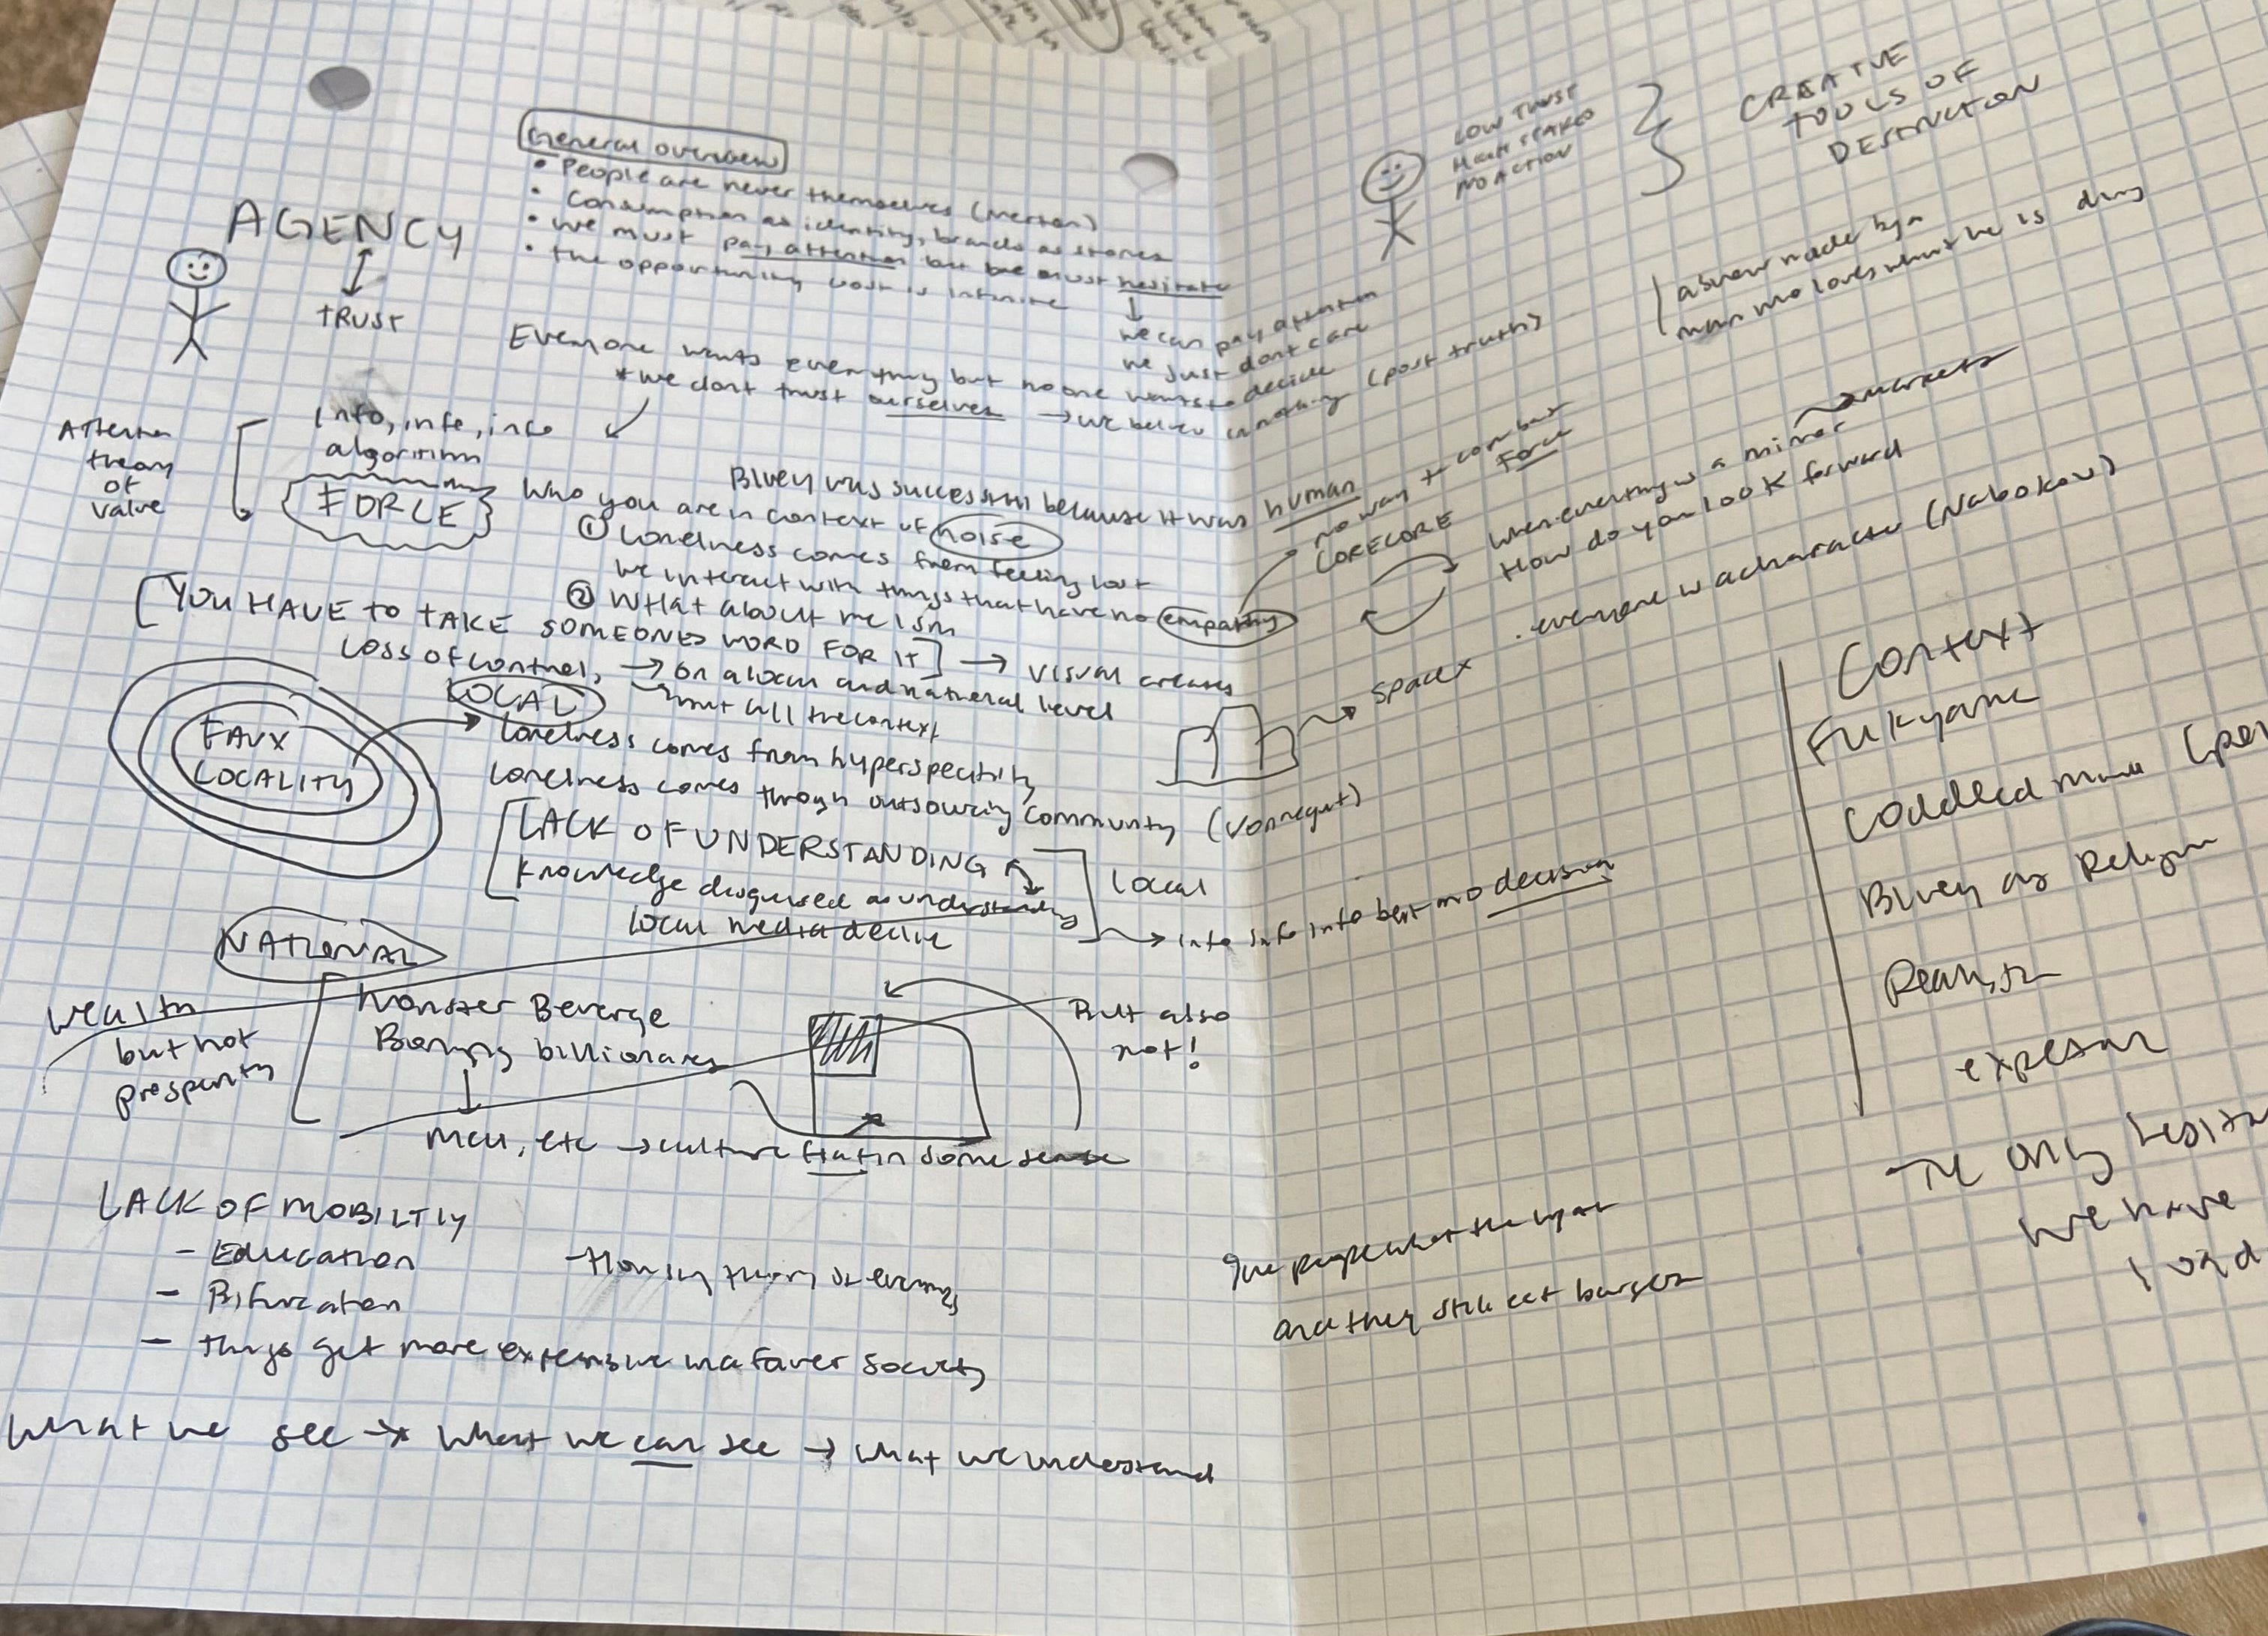 General overview
• People are never themselves (Merton)
• Consumption as identity, brands as stories
• We must pay attention but we must hesitate
• The opportunity cost is infinite
we can pay attention
we just dont care
AGENCY
TRUST
Everyone wants everything but no one wants to decide
*we dont trust ourselves → we believe in nothing (post truth)
Attention
theory
of
value
info, info, info
algorithm
FORCE
Bluey was successful because it was human
Who you are in context of noise
① Loneliness comes from feeling lost
we interact with things that have no empathy
② What about me ism
[YOU HAVE TO TAKE SOMEONES WORD FOR IT] → visual creases
Loss of control, → on a local and national level
LOCAL
not all the context
FAUX
LOCALITY
Loneliness comes from hyperspecificity
Loneliness comes through outsourcing community (Vonnegut)
[LACK OF UNDERSTANDING
knowledge disguised as understanding
local media decline
Local
info info info but no decision
NATIONAL
Wealth
but not
prosperity
Monster Beverage
Boring billionaires
But also
not!
MCU, etc → culture flat in some sense
LACK OF MOBILTIY
- Education
- Bifurcation
- things get more expensive in a faster society
- Housing theory of everything
What we see → What we can see → what we understand
LOW TRUST
HIGH STAKES
NO ACTION
CREATIVE
TOOLS OF
DESTRUCTION
a show made by a
man who loves what he is doing
no way to combat
Force
CORECORE
markets
When everything is a mirror
How do you look forward
• everyone is a character (Nabokov)
SpaceX
Context
Fukyama
Coddled Mind
Bluey as Religion
Realistic
The only
we have
and they still eat burgers